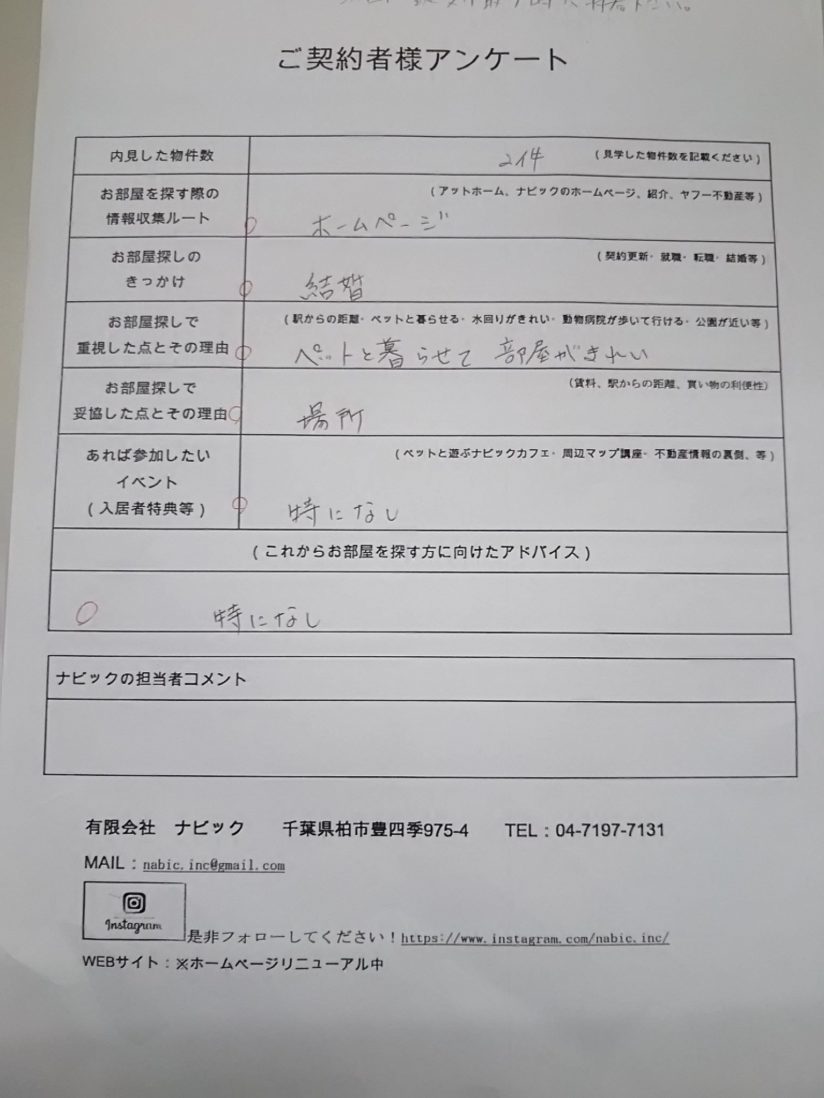 ご契約者様アンケート
内見した物件数
2件
(見学した物件数を記載ください)
お部屋を探す際の
情報収集ルート
(アットホーム、ナビックのホームページ、紹介、ヤフー不動産等)
ホームページ
お部屋探しの
きっかけ
(契約更新・就職・転職・結婚等)
結婚
お部屋探しで
重視した点とその理由
(駅からの距離・ペットと暮らせる・水回りがきれい・動物病院が歩いて行ける・公園が近い等)
ペットと暮らせて 部屋がきれい
お部屋探しで
妥協した点とその理由
(賃料、駅からの距離、買い物の利便性)
場所
あれば参加したい
イベント
(入居者特典等)
(ペットと遊ぶナビックカフェ・周辺マップ講座・不動産情報の裏側、等)
特になし
(これからお部屋を探す方に向けたアドバイス)
特になし
ナビックの担当者コメント
有限会社 ナビック 千葉県柏市豊四季975-4 TEL:04-7197-7131
MAIL:nabic.inc@gmail.com
Instagram
是非フォローしてください!https://www.instagram.com/nabic.inc/
WEBサイト:※ホームページリニューアル中